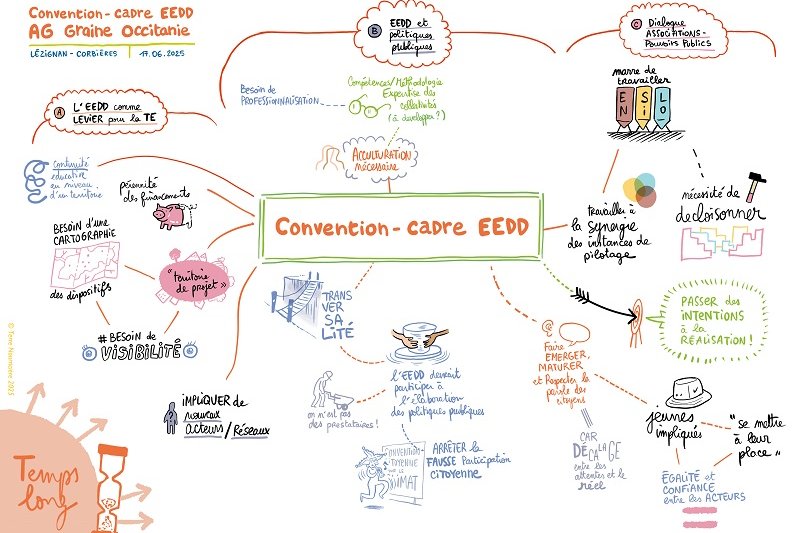 Convention-cadre EEDD
AG Graine Occitanie
LÉZIGNAN-CORBIÈRES
17.06.2025
A
L'EEDD comme
LEVIER pour la TE
Continuité
éducative
au niveau
d'un territoire
pérennité
des financements
BESOIN d'une
CARTOGRAPHIE
des dispositifs
"territoire
de projet"
# BESOIN de
VISIBILITÉ
IMPLIQUER de
nouveaux
acteurs/Réseaux
B
EEDD et
politiques
publiques
Besoin de
PROFESSIONNALISATION
Compétences/Méthodologie
Expertise des
collectivités
(à développer?)
ACCULTURATION
nécessaire
C
Dialogue
ASSOCIATIONS-
Pouvoirs Publics
marre de
travailler
EN
Si
LO
travailler à
la SYNERGIE
des instances de
pilotage
nécessité de
decloisonner
Convention-cadre EEDD
PASSER des
INTENTIONS
à la
RÉALISATION!
TRANS
VER
SA
LITÉ
l'EEDD devrait
participer à
l'élaboration
des politiques publiques
on n'est pas
des prestataires!
CONVENTION
CITOYENNE
MAT
ARRÊTER la
FAUSSE Participation
CITOYENNE
Faire
EMERGER,
MATURER
et Respecter la
parole des
citoyens
CAR
DÉCALAGE
entre les
attentes et le
réel
jeunes
impliqués
"se mettre
à leur
place"
ÉGALITÉ et
CONFIANCE
entre les ACTEURS
Temps
long